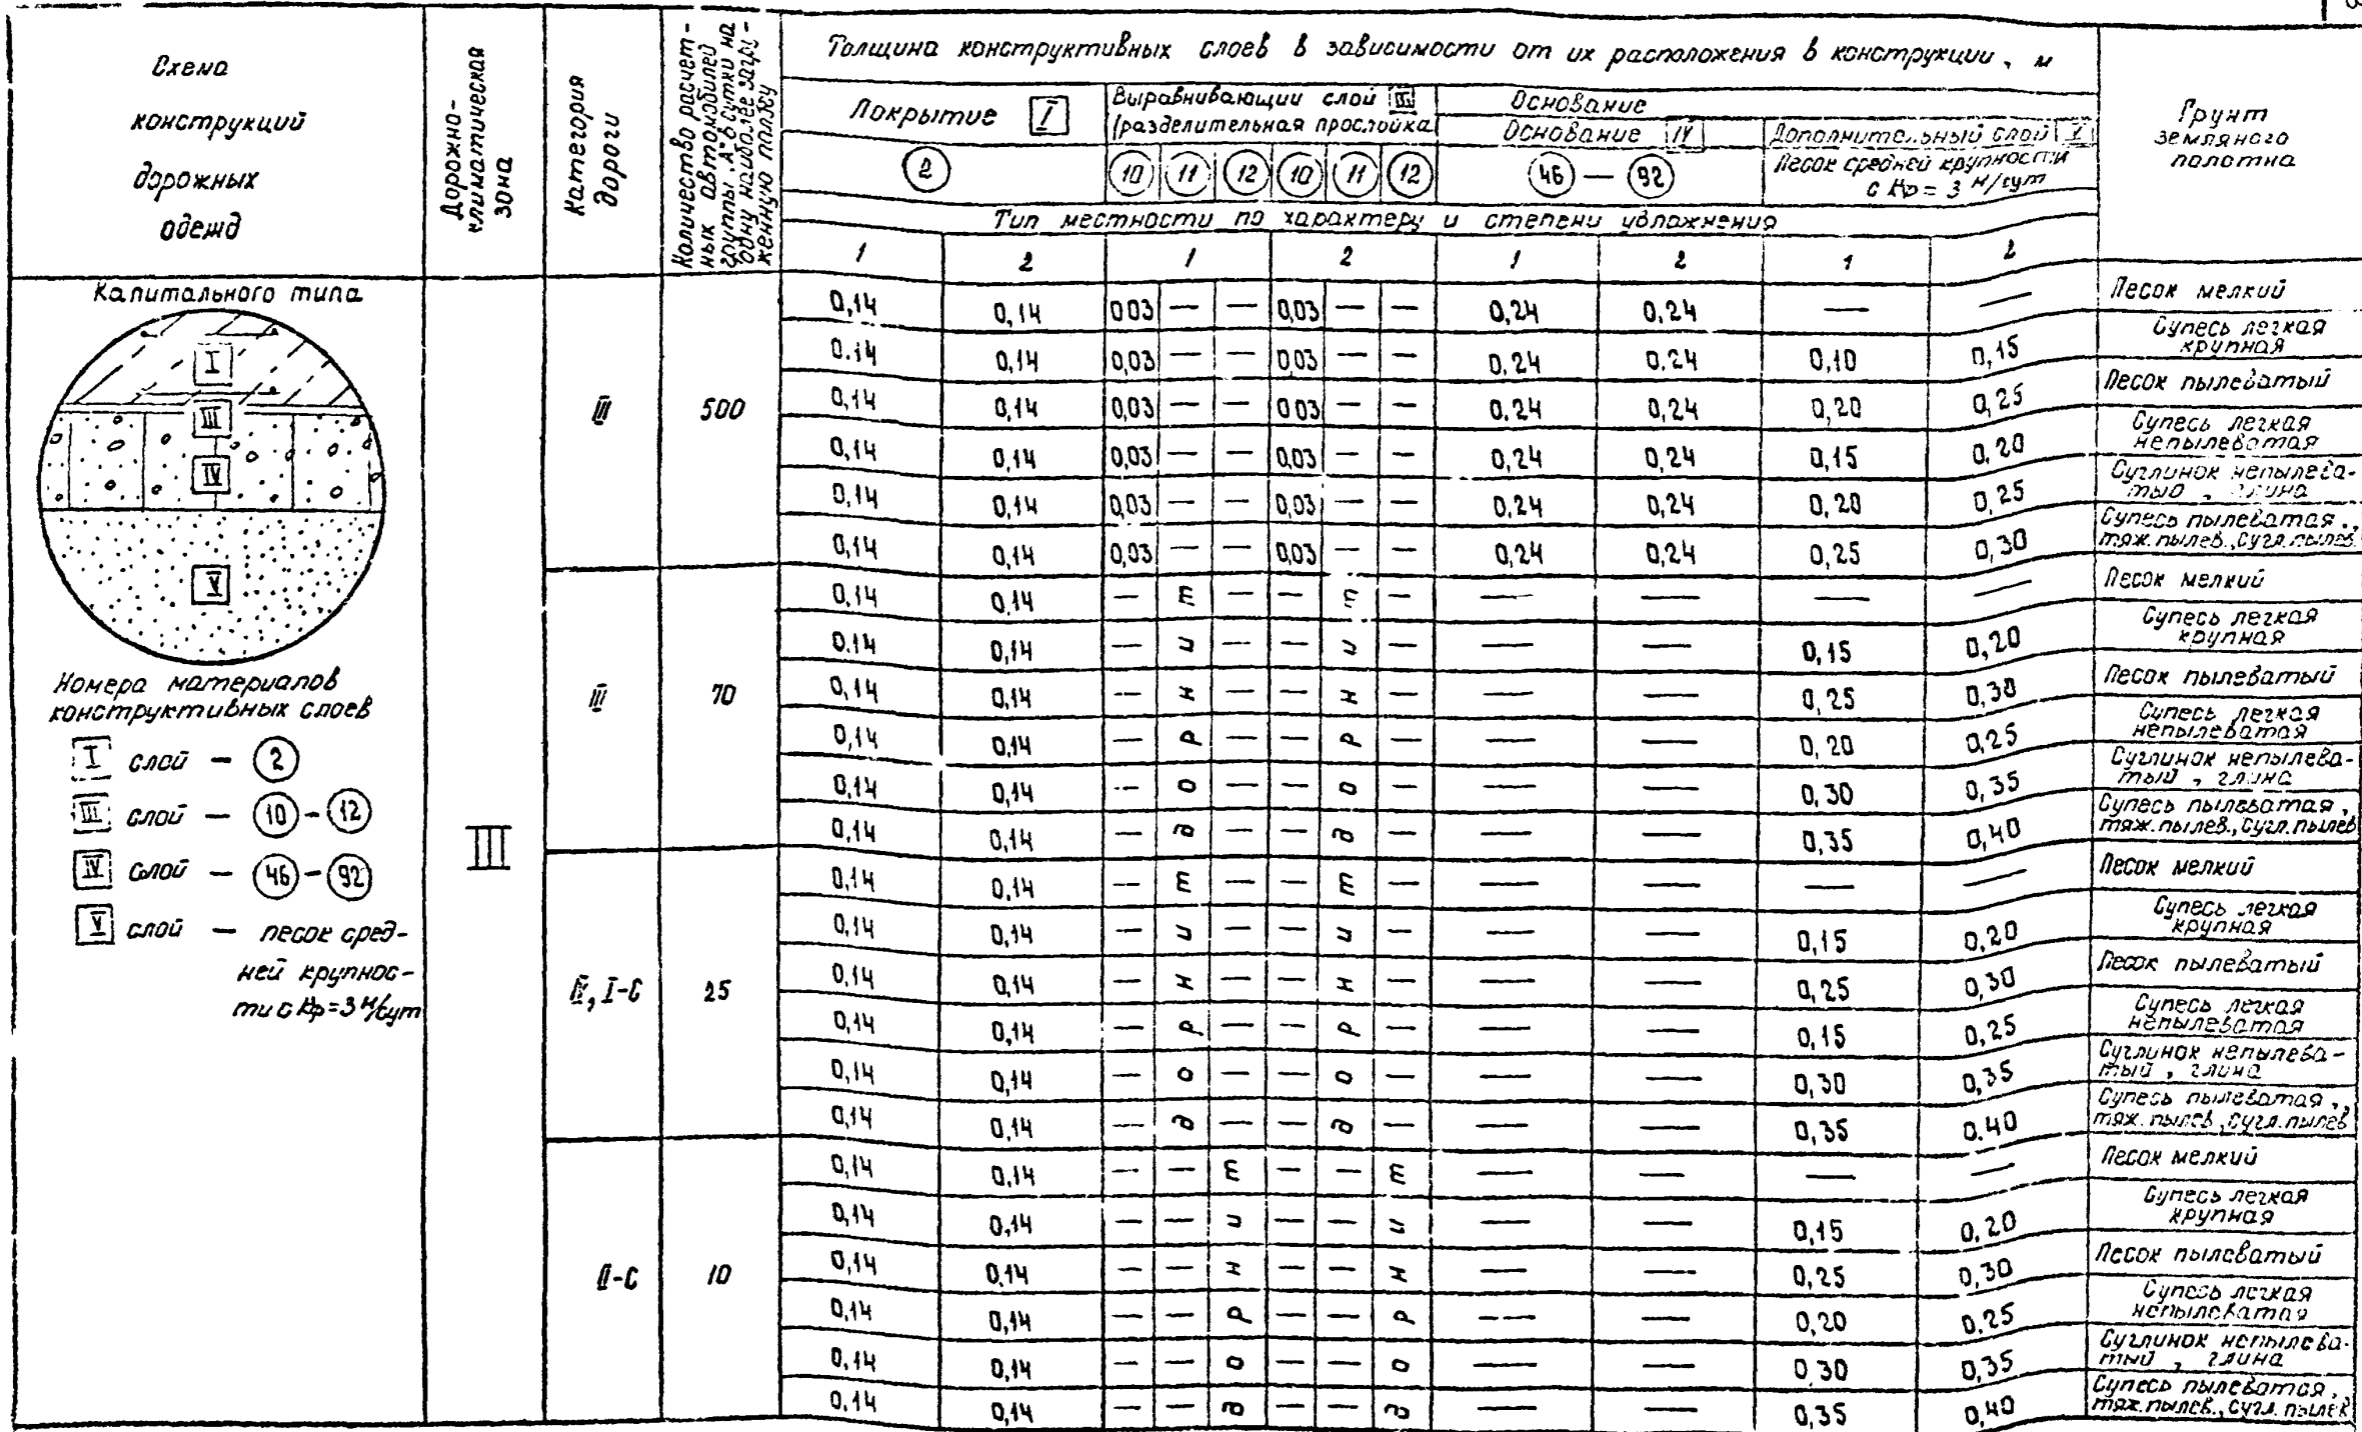 Схема
конструкций
дорожных
одежд
Дорожно-
климатическая
зона
Категория
дороги
Количество расчет-
ных автомобилей
группы „А" в сутки на
одну наиболее загру-
женную полосу
Толщина конструктивных слоев в зависимости от их расположения в конструкции, м
Покрытие I
Выравнивающии слой III
(разделительная прослойка
Основание
Основание IV
Дополнительный слой V
2
10 11 12 10 11 12
46 — 92
Песок средней крупности
с Кф = 3 м/сут
Грунт
земляного
полотна
Тип местности по характеру и степени увлажнения
1 2 1 2 1 2 1 2
Капитального типа
I
III
IV
V
Номера материалов
конструктивных слоев
I слой — 2
III слой — 10 - 12
IV слой — 46 - 92
V слой — песок сред-
ней крупнос-
ти с Кф=3м/сут
III
III 500
0,14 0,14 003 — — 0,03 — — 0,24 0,24 — — Песок мелкий
0.14 0,14 0,03 — — 0,03 — — 0,24 0.24 0,10 0,15 Супесь легкая
крупная
0,14 0,14 0,03 — — 003 — — 0.24 0,24 0,20 0,25 Песок пылеватый
0,14 0,14 0,03 — — 0,03 — — 0,24 0,24 0,15 0,20 Супесь легкая
непылеватая
0,14 0,14 0,03 — — 0,03 — — 0,24 0,24 0,20 0,25 Суглинок непылева-
тый, глина
0,14 0,14 0,03 — — 0,03 — — 0,24 0,24 0,25 0,30 Супесь пылеватая,
тяж.пылев.,Сугл.пылев.
III 70
0,14 0,14 — т — — т — — — — — Песок мелкий
0.14 0,14 — и — — и — — — 0,15 0,20 Супесь легкая
крупная
0,14 0,14 — н — — н — — — 0,25 0,30 Песок пылеватый
0,14 0,14 — р — — р — — — 0,20 0,25 Супесь легкая
непылеватая
0,14 0,14 — о — — о — — — 0,30 0,35 Суглинок непылева-
тый, глина
0,14 0,14 — д — — д — — — 0,35 0,40 Супесь пылеватая,
тяж.пылев.,Сугл.пылев
IV, I-С 25
0,14 0,14 — т — — т — — — — — Песок мелкий
0,14 0,14 — и — — и — — — 0,15 0,20 Супесь легкая
крупная
0,14 0,14 — н — — н — — — 0,25 0,30 Песок пылеватый
0,14 0,14 — р — — р — — — 0,15 0,25 Супесь легкая
непылеватая
0,14 0,14 — о — — о — — — 0,30 0,35 Суглинок непылева-
тый, глина
0,14 0,14 — д — — д — — — 0,35 0.40 Супесь пылеватая,
тяж.пылев.,Сугл.пылев
II-С 10
0,14 0,14 — — т — — т — — — — Песок мелкий
0,14 0,14 — — и — — и — — 0,15 0,20 Супесь легкая
крупная
0,14 0.14 — — н — — н — — 0,25 0,30 Песок пылеватый
0,14 0,14 — — р — — р — — 0,20 0,25 Супесь легкая
непылеватая
0,14 0,14 — — о — — о — — 0,30 0,35 Суглинок непылева-
тый, глина
0,14 0,14 — — д — — д — — 0,35 0,40 Супесь пылеватая,
тяж.пылев.,Сугл.пылев